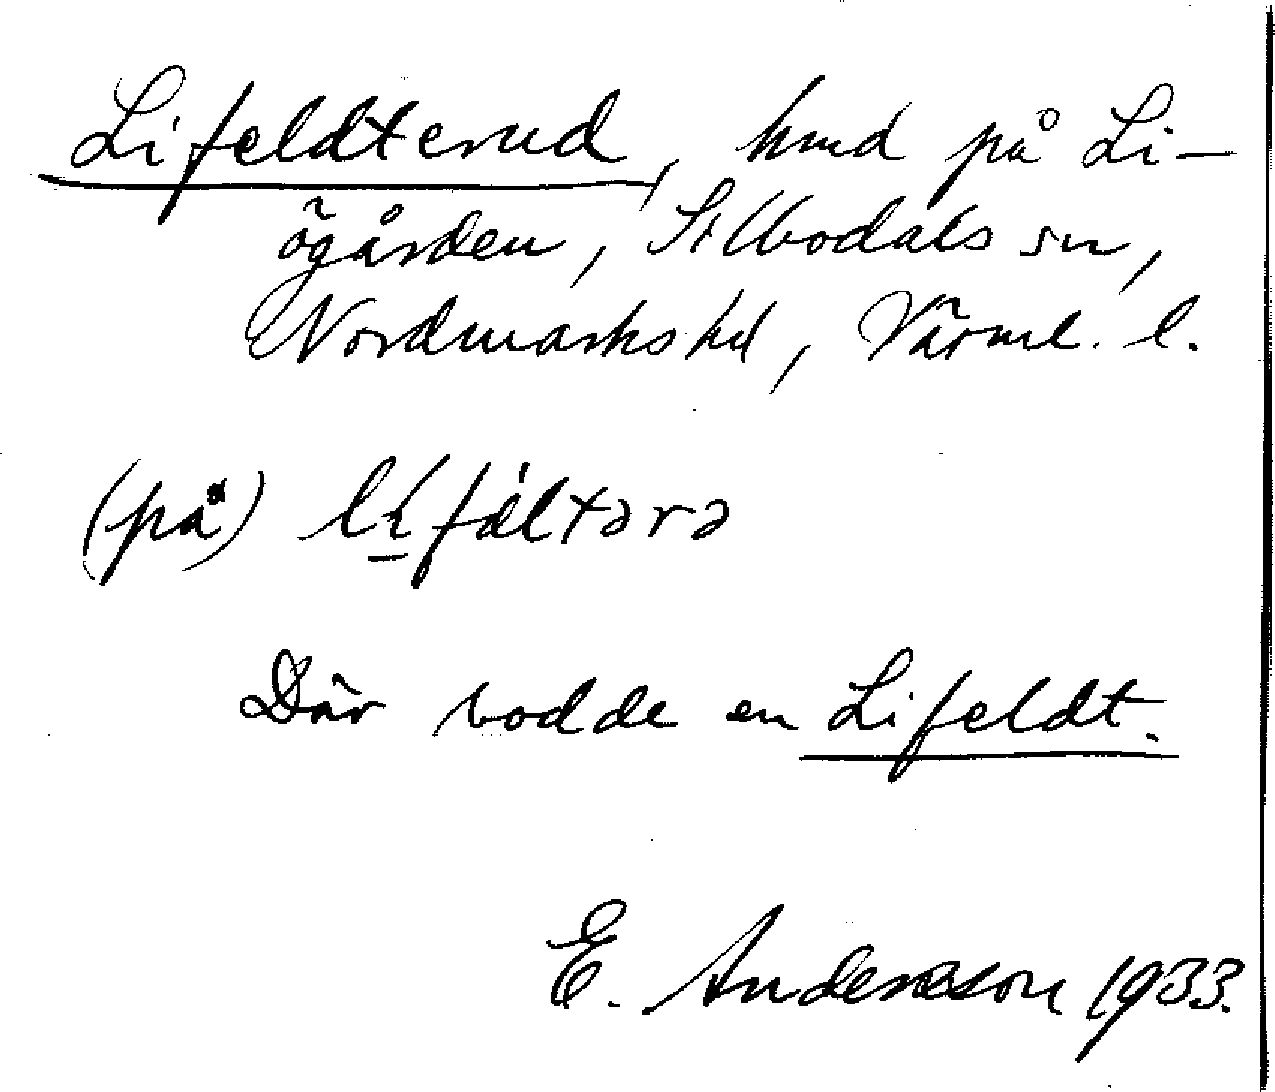 Lifeldterud, hmd på Li-
ögården, Silbodals sn,
Nordmarks hd, Värml. l.
(på) li̱fæ̀ltərə
Där bodde en Lifeldt.
E. Andersson 1933.